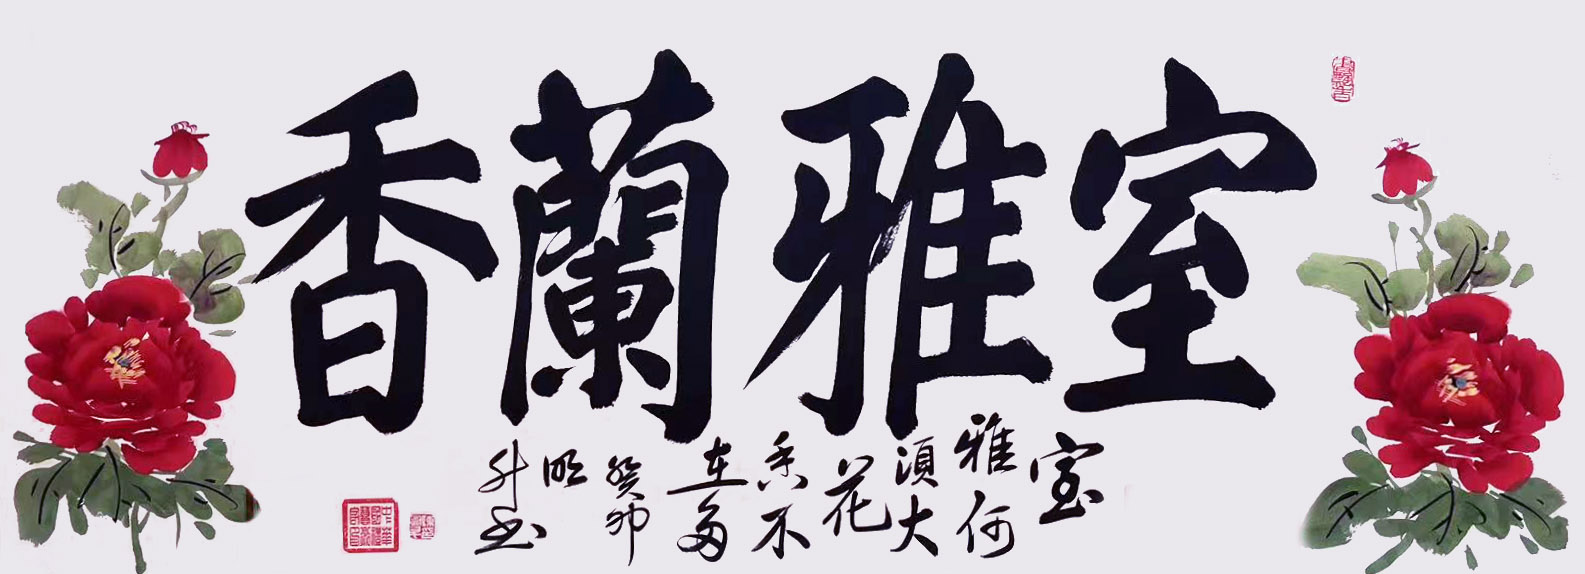 室雅蘭香
室
雅何
須大
花
香不
在多
癸卯
明
升书